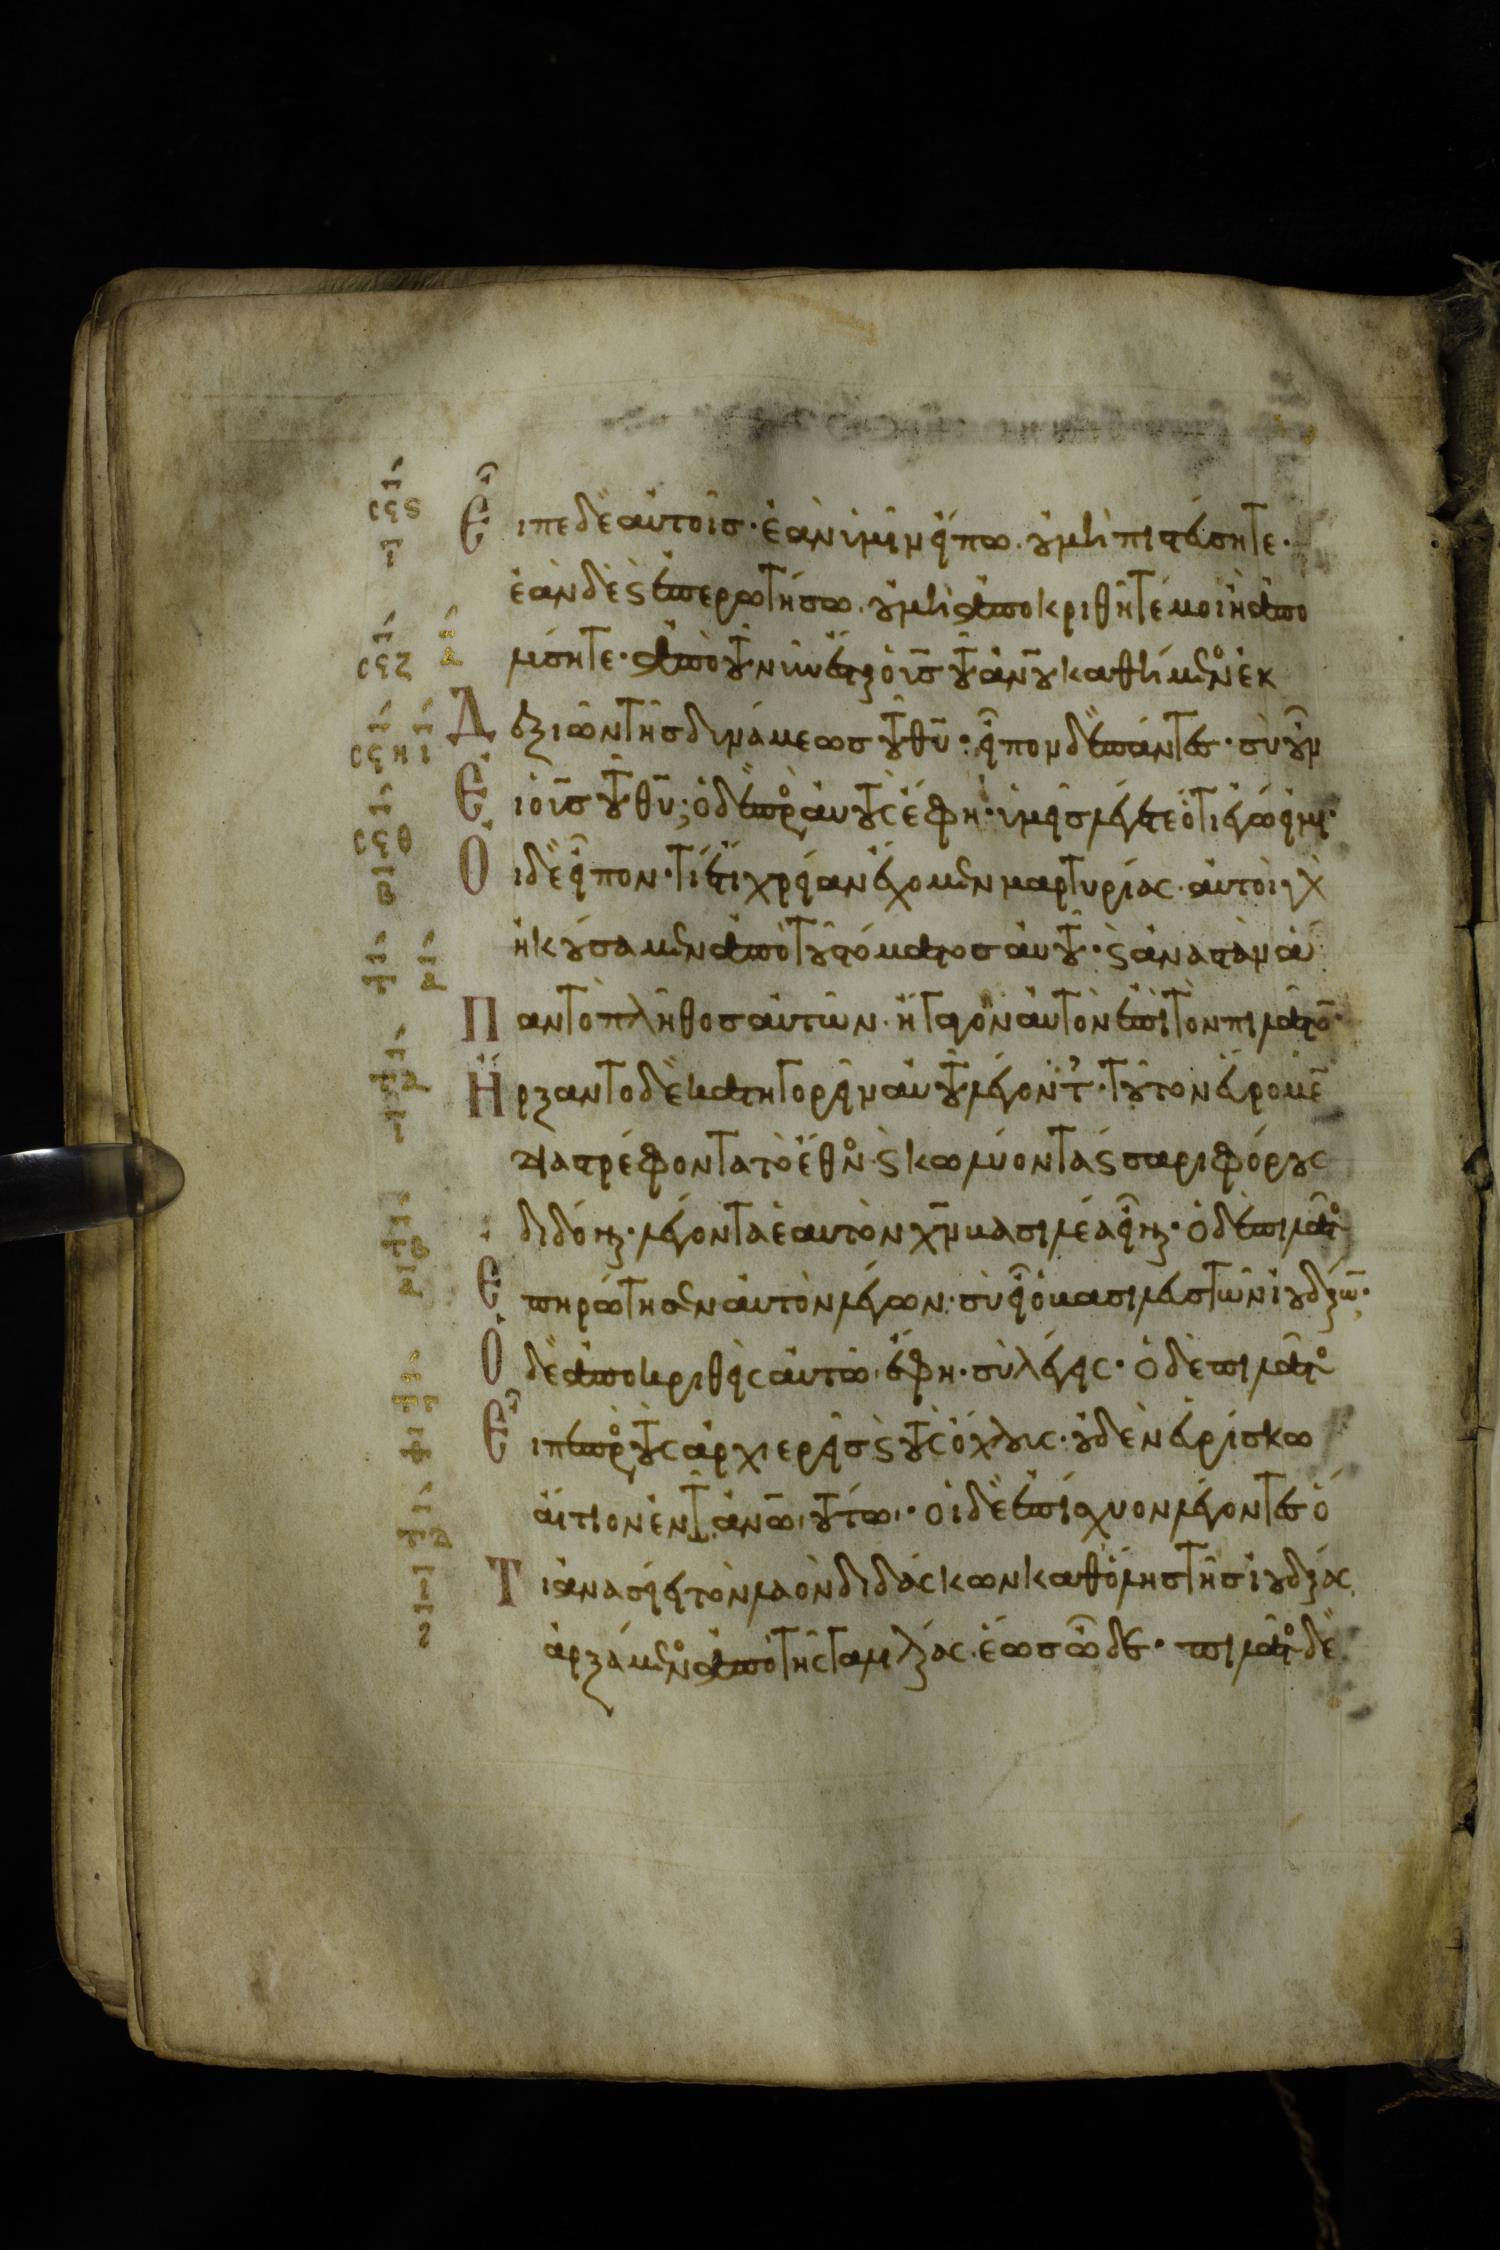 σϟς Εἶπε δὲ αὐτοῖς· ἐὰν ὑμῖν εἴπω. οὐ μὴ πιστεύσητε·
ἐὰν δὲ ϗ ἐπερωτήσω. οὐ μὴ ἀποκριθῆτέ μοι ἢ ἀπο
σϟζ λύσητε· ἀπὸ τοῦ νῦν ἔσται ὁ υἱὸσ τοῦ ἀνου καθήμενος ἐκ
σϟη ι Δεξιῶν τῆσ δυνάμεωσ τοῦ θυ· εἶπον δὲ πάντες· σὺ οὖν
Εἶ ὁ υἱὸσ τοῦ θυ; ὁ δὲ πρὸς αὐτοὺς ἔφη· ὑμεῖσ λέγετε ὅτι ἐγώ εἰμι·
σϟθ β Οἱ δὲ εἶπον· τί ἔτι χρείαν ἔχομεν μαρτυρίας· αὐτοὶ γὰρ
ἠκούσαμεν ἀπὸ τοῦ στόματοσ αὐτοῦ· ϗ ἀναστὰν ἅ
Παν τὸ πλῆθοσ αὐτῶν· ἤγαγον αὐτὸν ἐπὶ τὸν πιλάτον·
Ἤρξαντο δὲ κατηγορεῖν αὐτοῦ λέγοντες· τοῦτον εὕρομεν
διαστρέφοντα τὸ ἔθνος· ϗ κωλύοντα καίσαρι φόρους
διδόναι· λέγοντα ἑαυτὸν χν βασιλέα εἶναι· ὁ δὲ πιλάτος
Ἐπηρώτησεν αὐτὸν λέγων· σὺ εἶ ὁ βασιλεὺς τῶν ἰουδαίων·
Ὁ δὲ ἀποκριθεὶς αὐτῶ, ἔφη· σὺ λέγεις· ὁ δὲ πιλάτος
Εἶπε πρὸς τοὺς ἀρχιερεῖσ ϗ τοὺς ὄχλους· οὐδὲν εὑρίσκω
αἴτιον ἐν τῶ ἀνω τούτω· οἱ δὲ ἐπίσχυον λέγοντες ὅ
Τι ἀνασείει τὸν λαὸν διδάσκων καθ᾽ ὅλησ τῆσ ἰουδαίας,
ἀρξάμενος ἀπὸ τῆς γαλιλαίας. ἕωσ ὧδε· πιλάτος δὲ